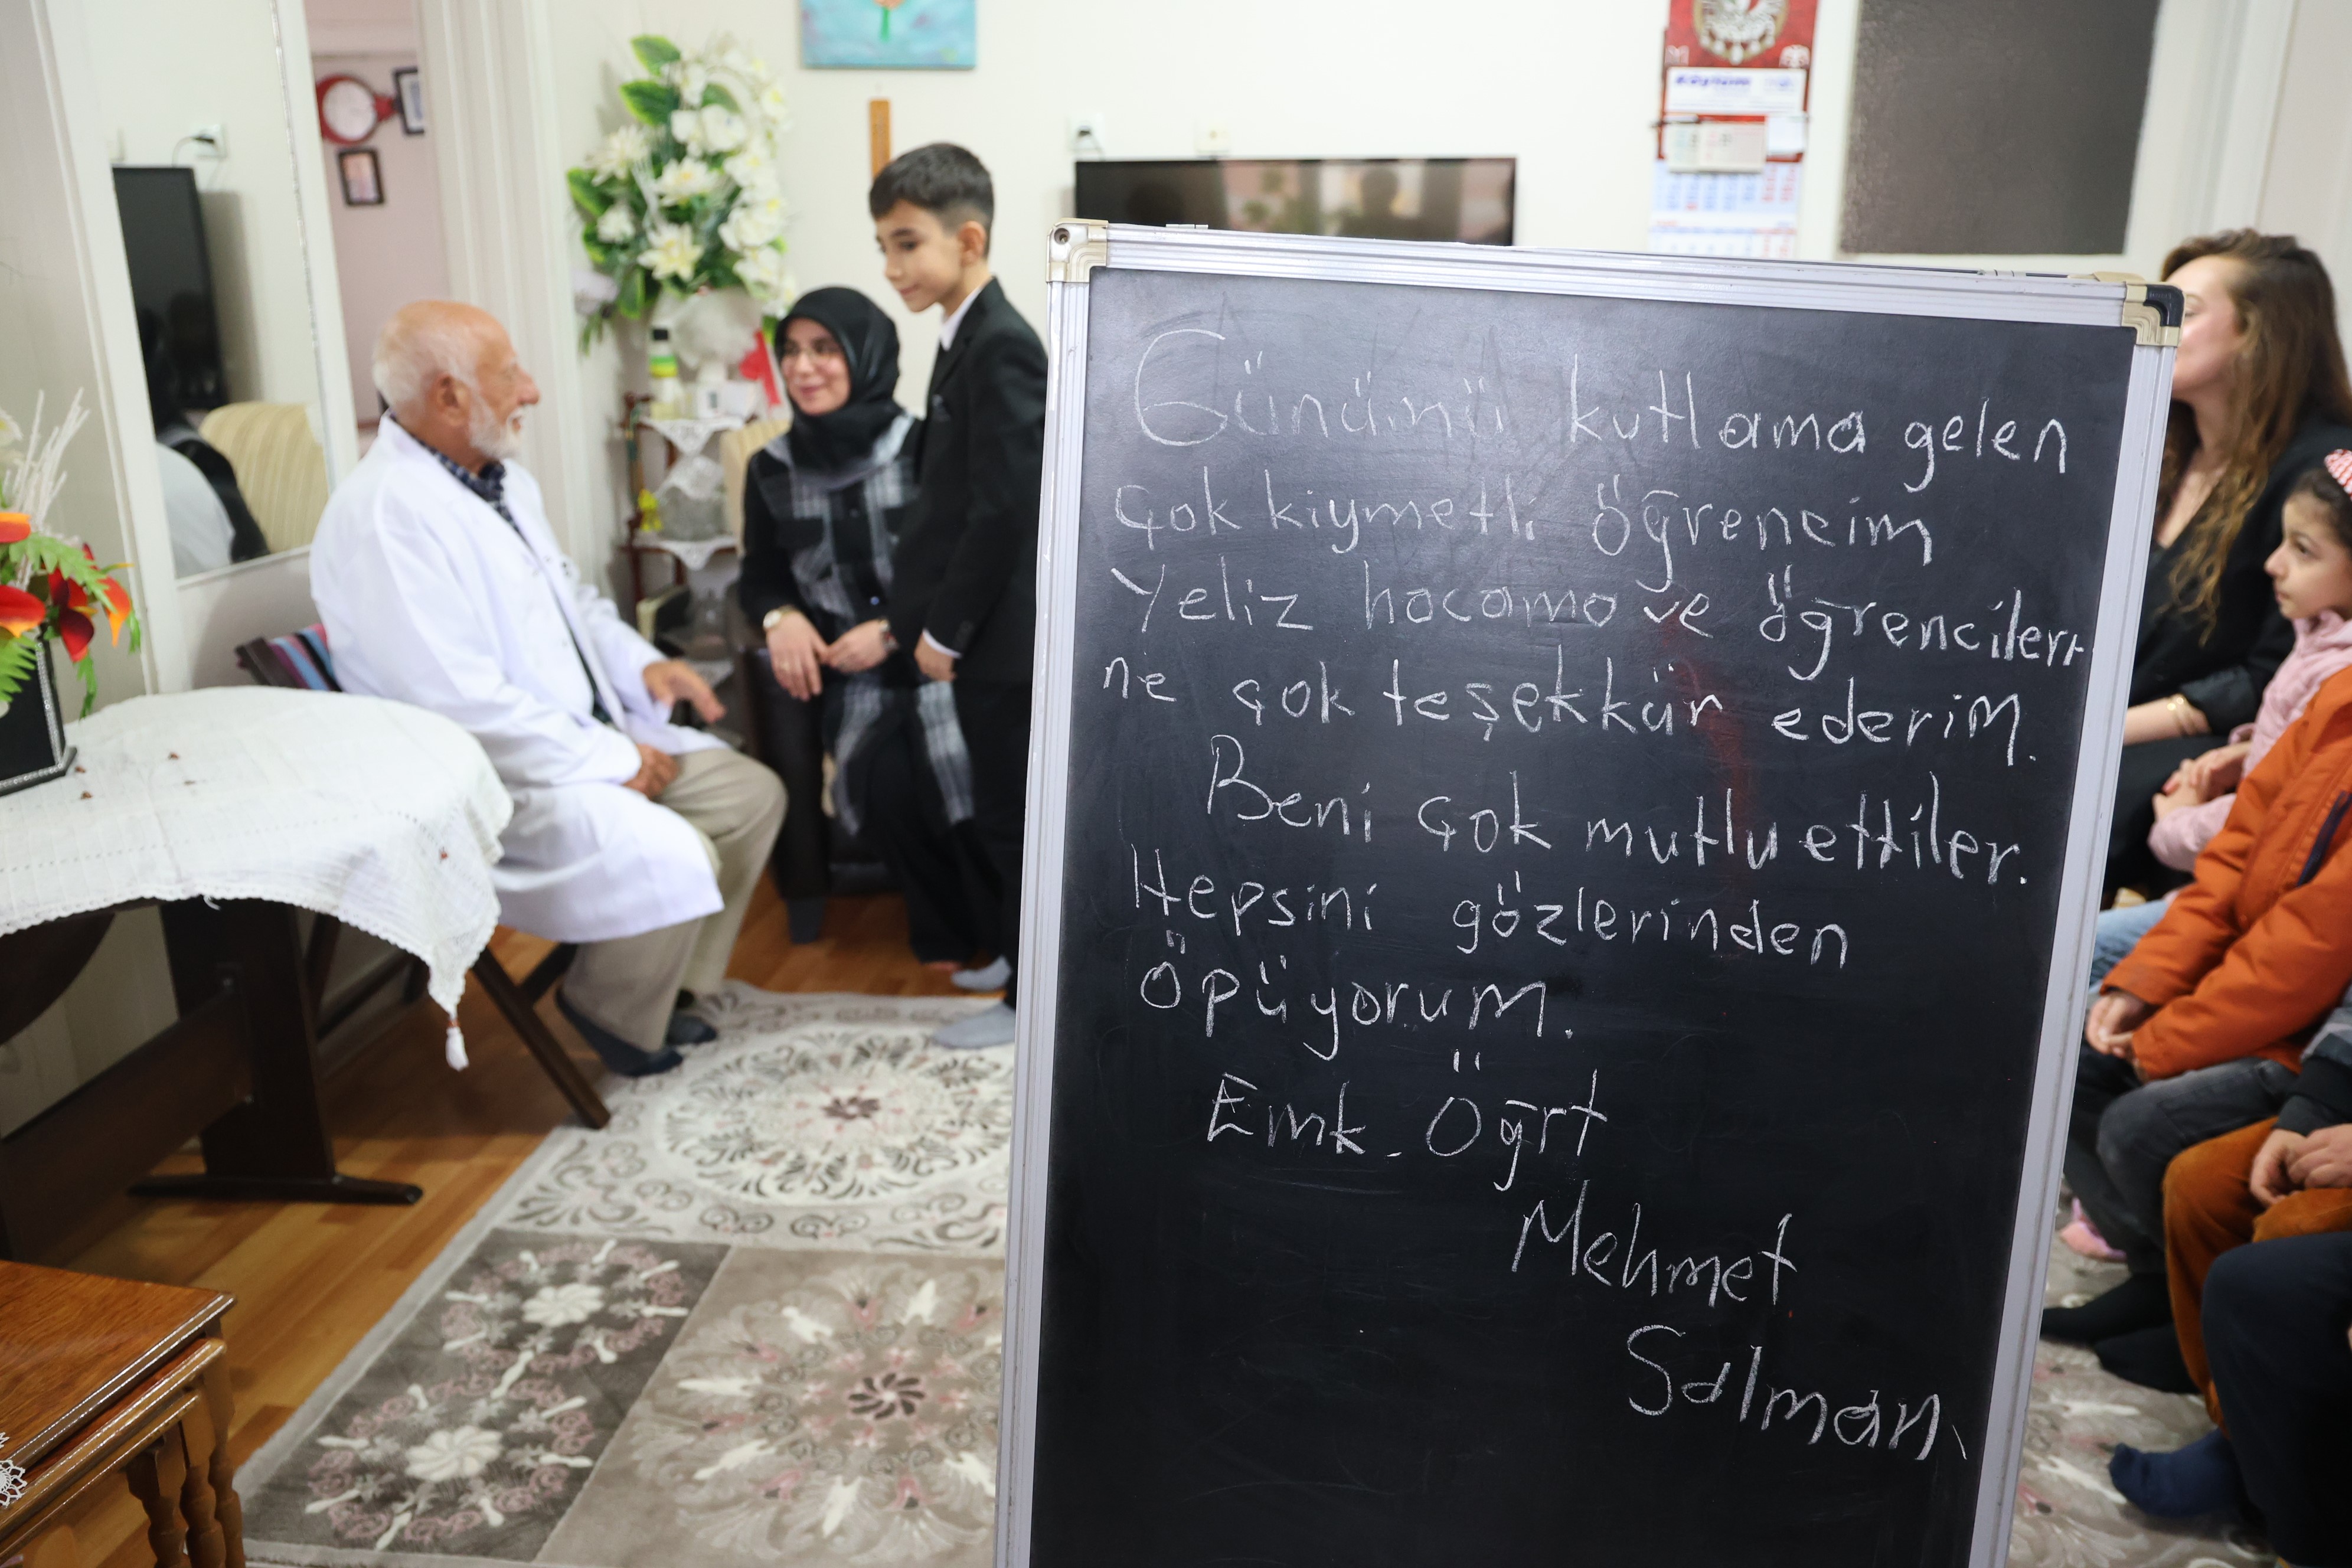 Günümü kutlama gelen
çok kıymetli öğrencim
Yeliz hocama ve öğrencileri
ne çok teşekkür ederim.
Beni çok mutlu ettiler.
Hepsini gözlerinden
öpüyorum.
Emk. Öğrt
Mehmet
Salman